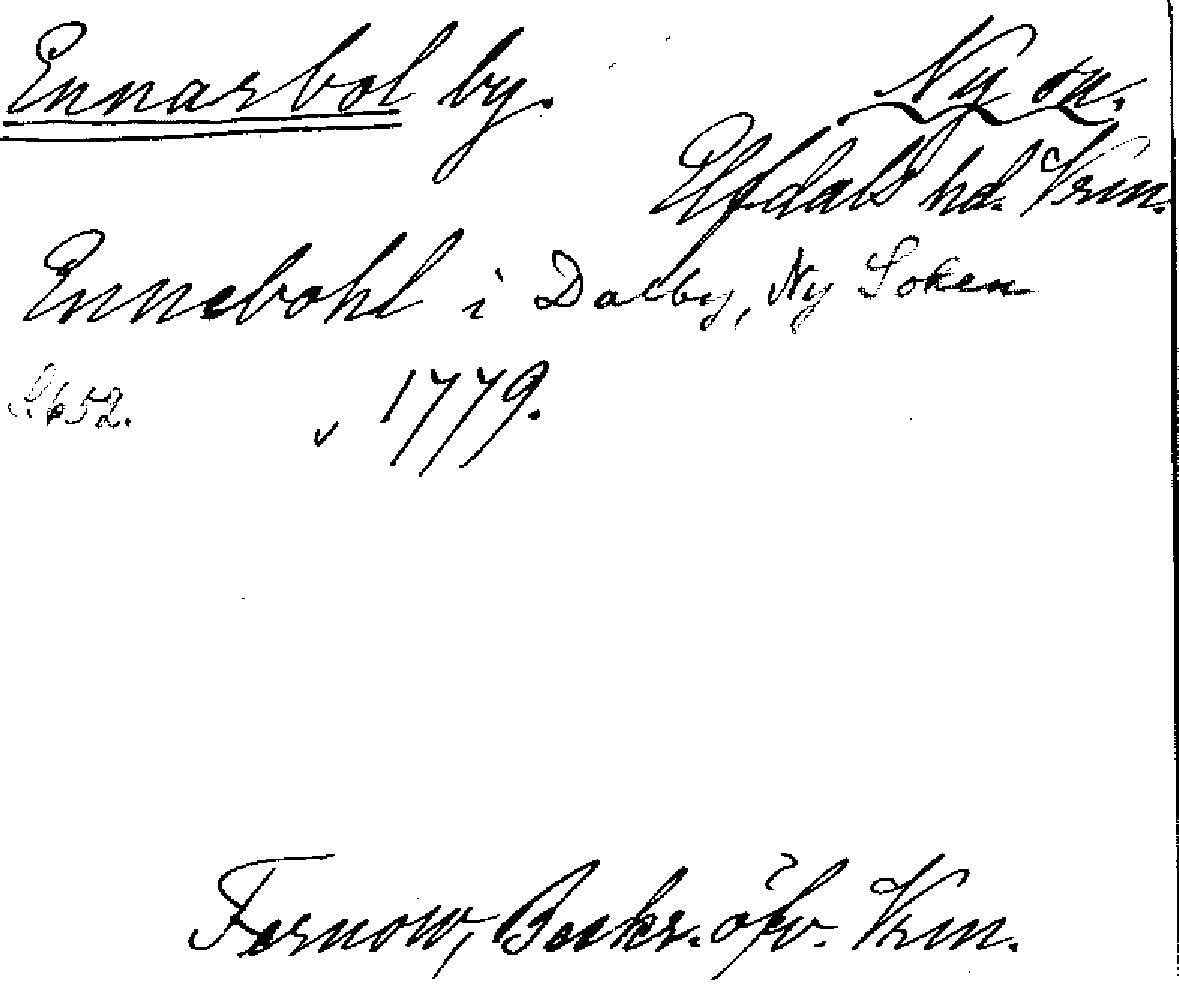 Ennarbol by. Ny sn.
Elfdals hd. Vrm.
Ennebohl i Dalby, Ny Soken
S. 652. v 1779.
Fernow, Beskr. öfv. Vrm.